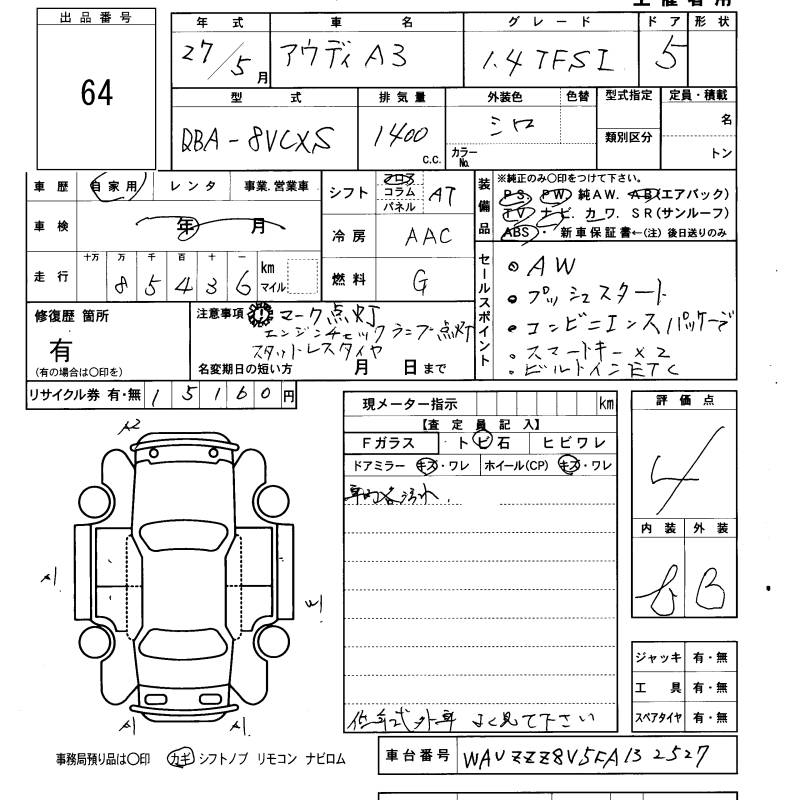 出品番号
64
年式 車名 グレード ドア 形状
27/5月 アウディ A3 1.4 TFSI 5
型式 排気量 外装色 色替 型式指定 定員・積載
DBA-8VCXS 1400 C.C. シロ カラーNo. 類別区分 名
トン
車歴 自家用 レンタ 事業.営業車
シフト フロア コラム パネル AT
装備品 ※純正のみ〇印をつけて下さい。
PS. PW. 純AW. AB(エアバック)
TV ナビ. カワ. SR(サンルーフ)
ABS・新車保証書←(注)後日送りのみ
車検 年 月
冷房 AAC
走行 十万 万 千 百 十 一 km マイル
8 5 4 3 6
燃料 G
セールスポイント
AW
プッシュスタート
コンビニエンスパッケージ
スマートキー×2
ビルトインETC
修復歴 箇所
有
(有の場合は〇印を)
注意事項 マーク点灯
エンジンチェックランプ点灯
スタットレスタイヤ
名変期日の短い方 月 日まで
リサイクル券 有・無 15160円
現メーター指示 km
【査定員記入】
Fガラス トビ石 ヒビワレ
ドアミラー キズ・ワレ ホイール(CP) キズ・ワレ
車内汚れ.
評価点
4
内装 外装
B
A2
A1
W1
A1 A1
ジャッキ 有・無
工具 有・無
スペアタイヤ 有・無
低年式外車 よく見て下さい
事務局預り品は〇印 カギ シフトノブ リモコン ナビロム
車台番号 WAUZZZ8V5FA132527